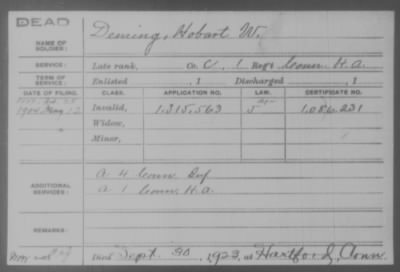 DEAD
NAME OF SOLDIER:
Deming, Hobart W.
SERVICE:
Late rank, Co. C, 1 Reg't Conn. H. A.
TERM OF SERVICE:
Enlisted , 1 Discharged , 1
DATE OF FILING. CLASS. APPLICATION NO. LAW. CERTIFICATE NO.
1904 May 12 Invalid, 1.315.563 1.086.231
Widow,
Minor,
ADDITIONAL SERVICES:
A 4 Conn Inf
A 1 Conn. H. A.
REMARKS:
Died Sept. 30, 1923, at Hartford, Conn.